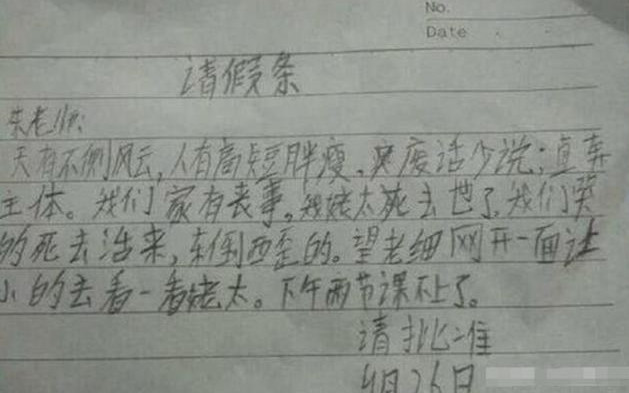 No.
Date
请假条
朱老师:
天有不侧风云,人有高短胖瘦,央废话少说;直奔
主体。我们家有丧事,我姥太死去也了,我们哭
的死去活来,东倒西歪的。望老细网开一面让
小的去看一看姥太。下午两节课不上了。
请批准
4月26日